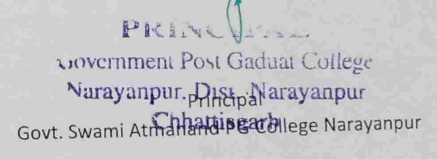 PRINCIPAL
Government Post Gaduat College
Narayanpur Dist. Narayanpur
Principal
Chhattisgarh
Govt. Swami Atmanand PG College Narayanpur